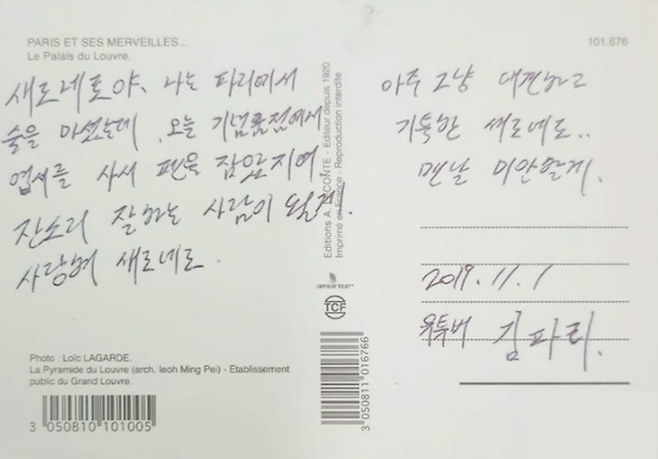 PARIS ET SES MERVEILLES...
Le Palais du Louvre.
101.676
새로네로야, 나는 파리에서
술을 마셨는데, 오늘 기념품점에서
엽서를 사서 펜을 잡았지여.
잔소리 잘하는 사람이 될게.
사랑해 새로네로.
아주 그냥 대견하고
기특한 새로네로..
맨날 미안할게.
2019.11.1
유투버 김파리.
Editions A. LECONTE - Editeur depuis 1920
Imprimé en France - Reproduction interdite
IMPRIM'VERT
TCF
3 050811 016766
Photo : Loïc LAGARDE.
La Pyramide du Louvre (arch. Ieoh Ming Pei) - Etablissement
public du Grand Louvre.
3 050810 101005